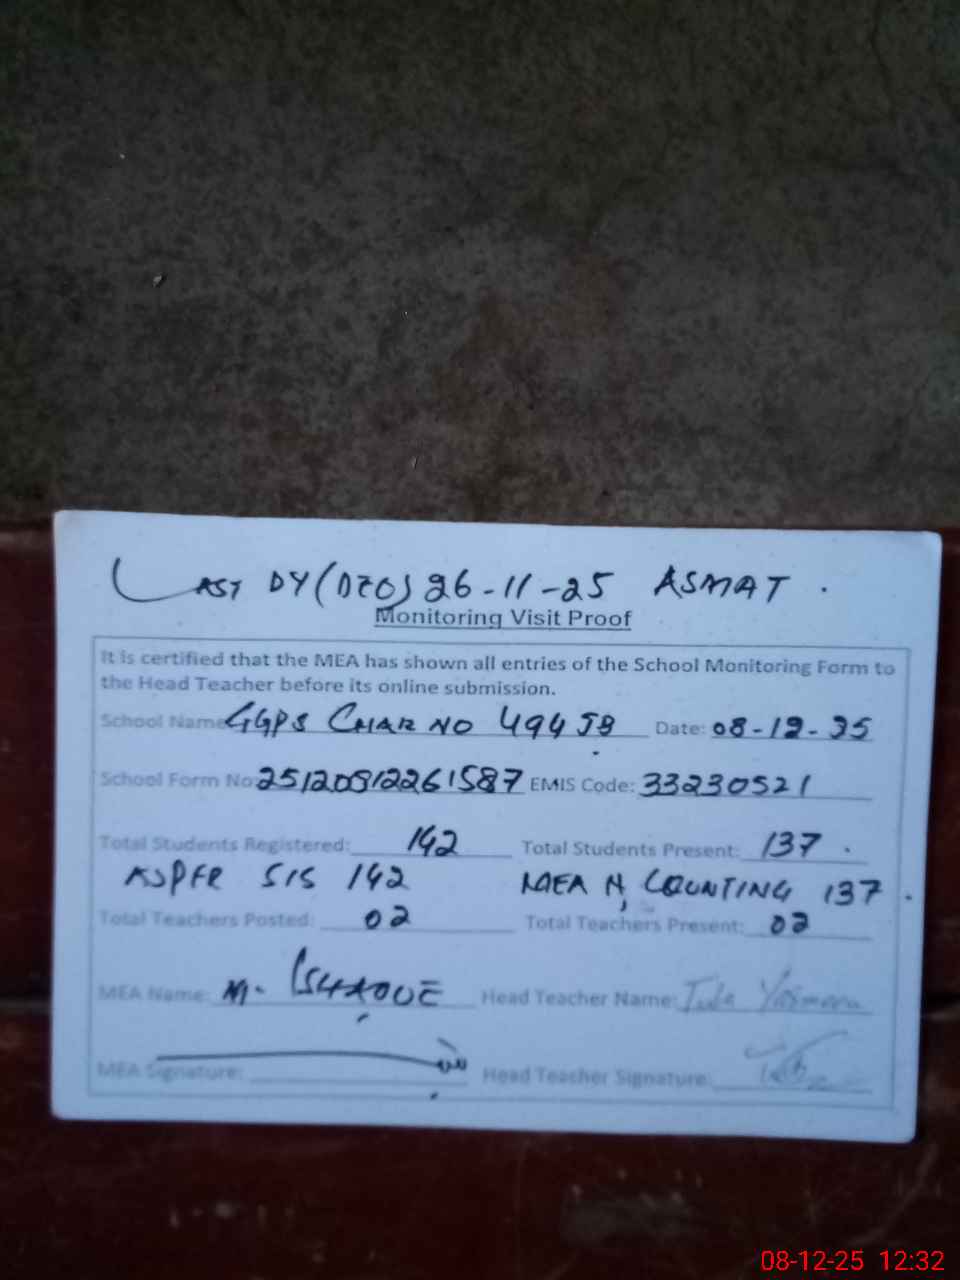 LAST DY (DEO) 26-11-25 ASMAT .
Monitoring Visit Proof
It is certified that the MEA has shown all entries of the School Monitoring Form to
the Head Teacher before its online submission.
School Name GGPS CHAK NO 494 JB Date: 08-12-25
School Form No: EMIS Code: 33230521
Total Students Registered: 142 Total Students Present: 137 .
AS PER SIS 142 MEA H, COUNTING 137 .
Total Teachers Posted: 02 Total Teachers Present: 02
MEA Name: M. ISHAQUE Head Teacher Name:
MEA Signature: Head Teacher Signature:
08-12-25 12:32